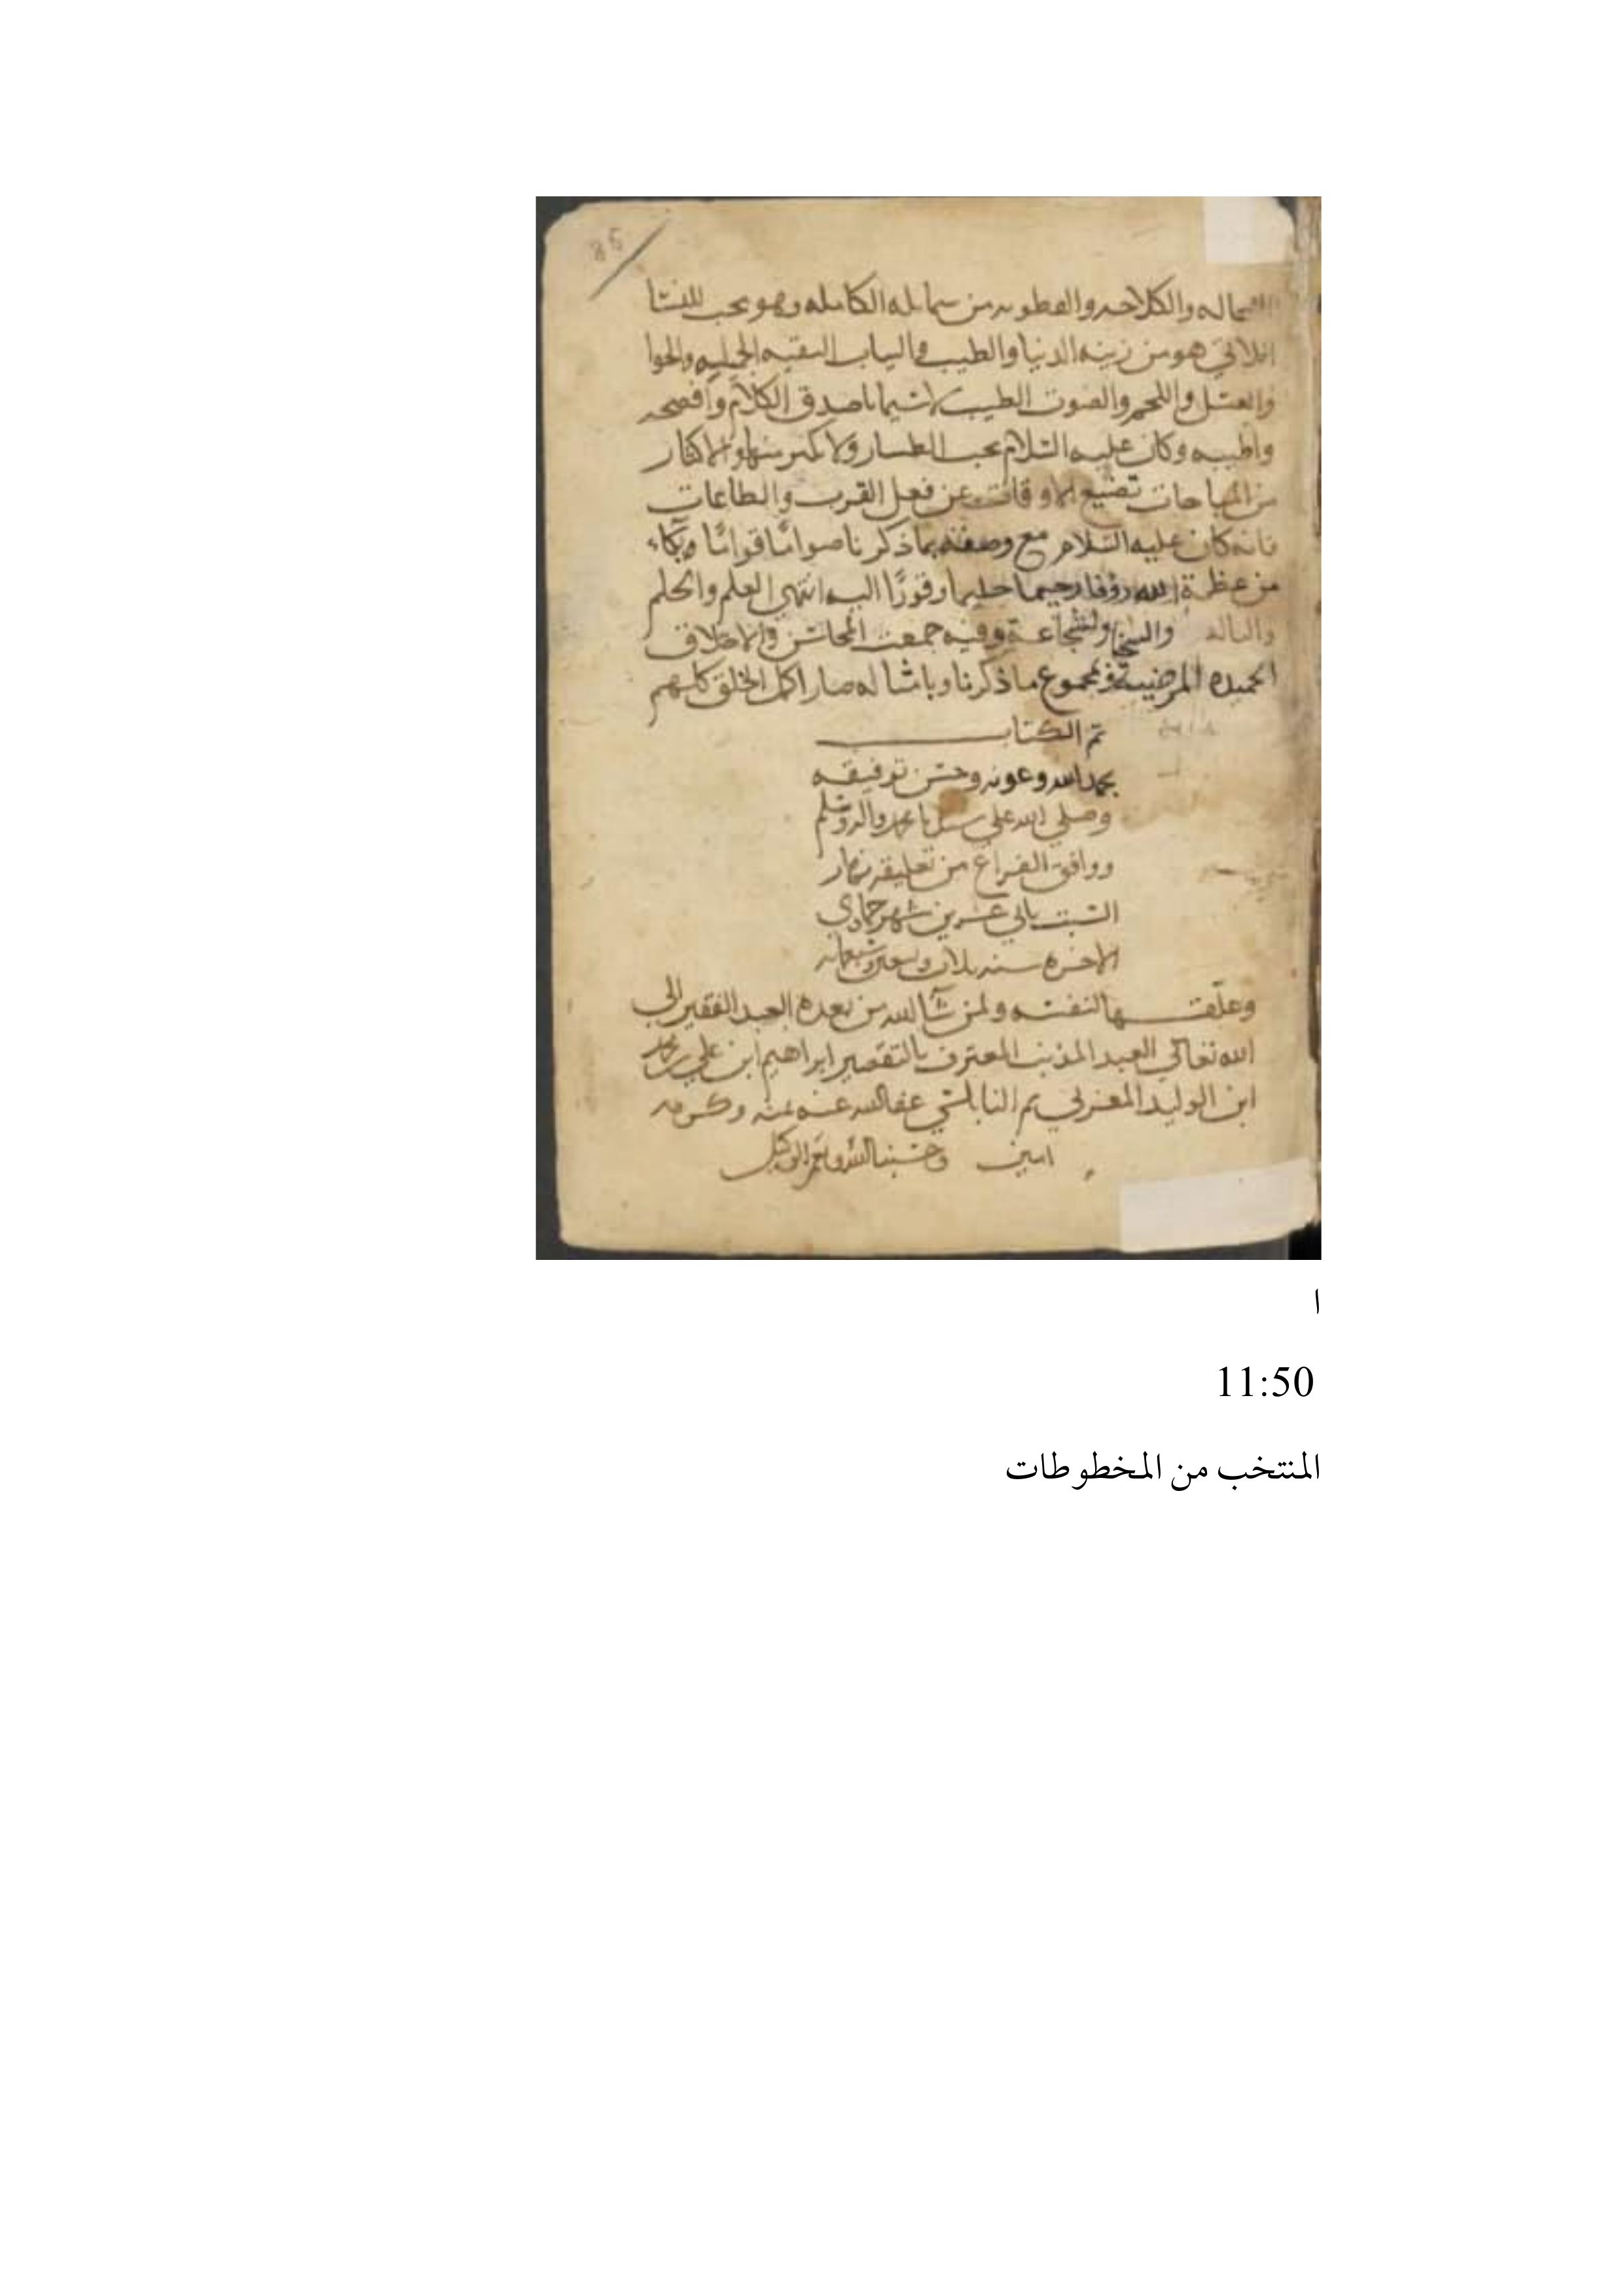 86
والكلاحه من شمايله الكامله وهو يحب للنسا
هو من زينه الدنيا والطيب والثياب النقيه الجميله والحلوا
والعسل واللحم والصوت الطيب لا سيما باصدق الكلام وافصحه
واطيبه وكان عليه السلام يحب ولا يكثر منها والاكثار
من المباحات تضيع الاوقات عن فعل القرب والطاعات
فانه كان عليه السلام مع وصفه بما ذكرنا صواما قواما وبكاء
من عظمة الله رؤفا رحيما حليما وقورًا اليه انتهى العلم والحلم
والسخا والشجاعة وفيه جمعت المحاسن والاخلاق
الحميده المرضية فبمجموع ما ذكرنا وبامثاله صار اكمل الخلق كلهم
تم الكتاب
بحمد الله وعونه وحسن توفيقه
وصلى الله على سيدنا محمد واله وسلم
ووافق الفراغ من تعليقه نهار
السبت ثاني عشرين شهر جمادي
الاخره سنه ثلاث وسبعمائه
وعلّقها لنفسه ولمن شآ الله من بعده العبد الفقير الي
الله تعالي العبد المذنب المعترف بالتقصير ابراهيم ابن علي بن محمد
ابن الوليد المغربي ثم النابلسي عفا الله عنه بمنه وكرمه
امين وحسبنا الله ونعم الوكيل
ا
11:50
المنتخب من المخطوطات